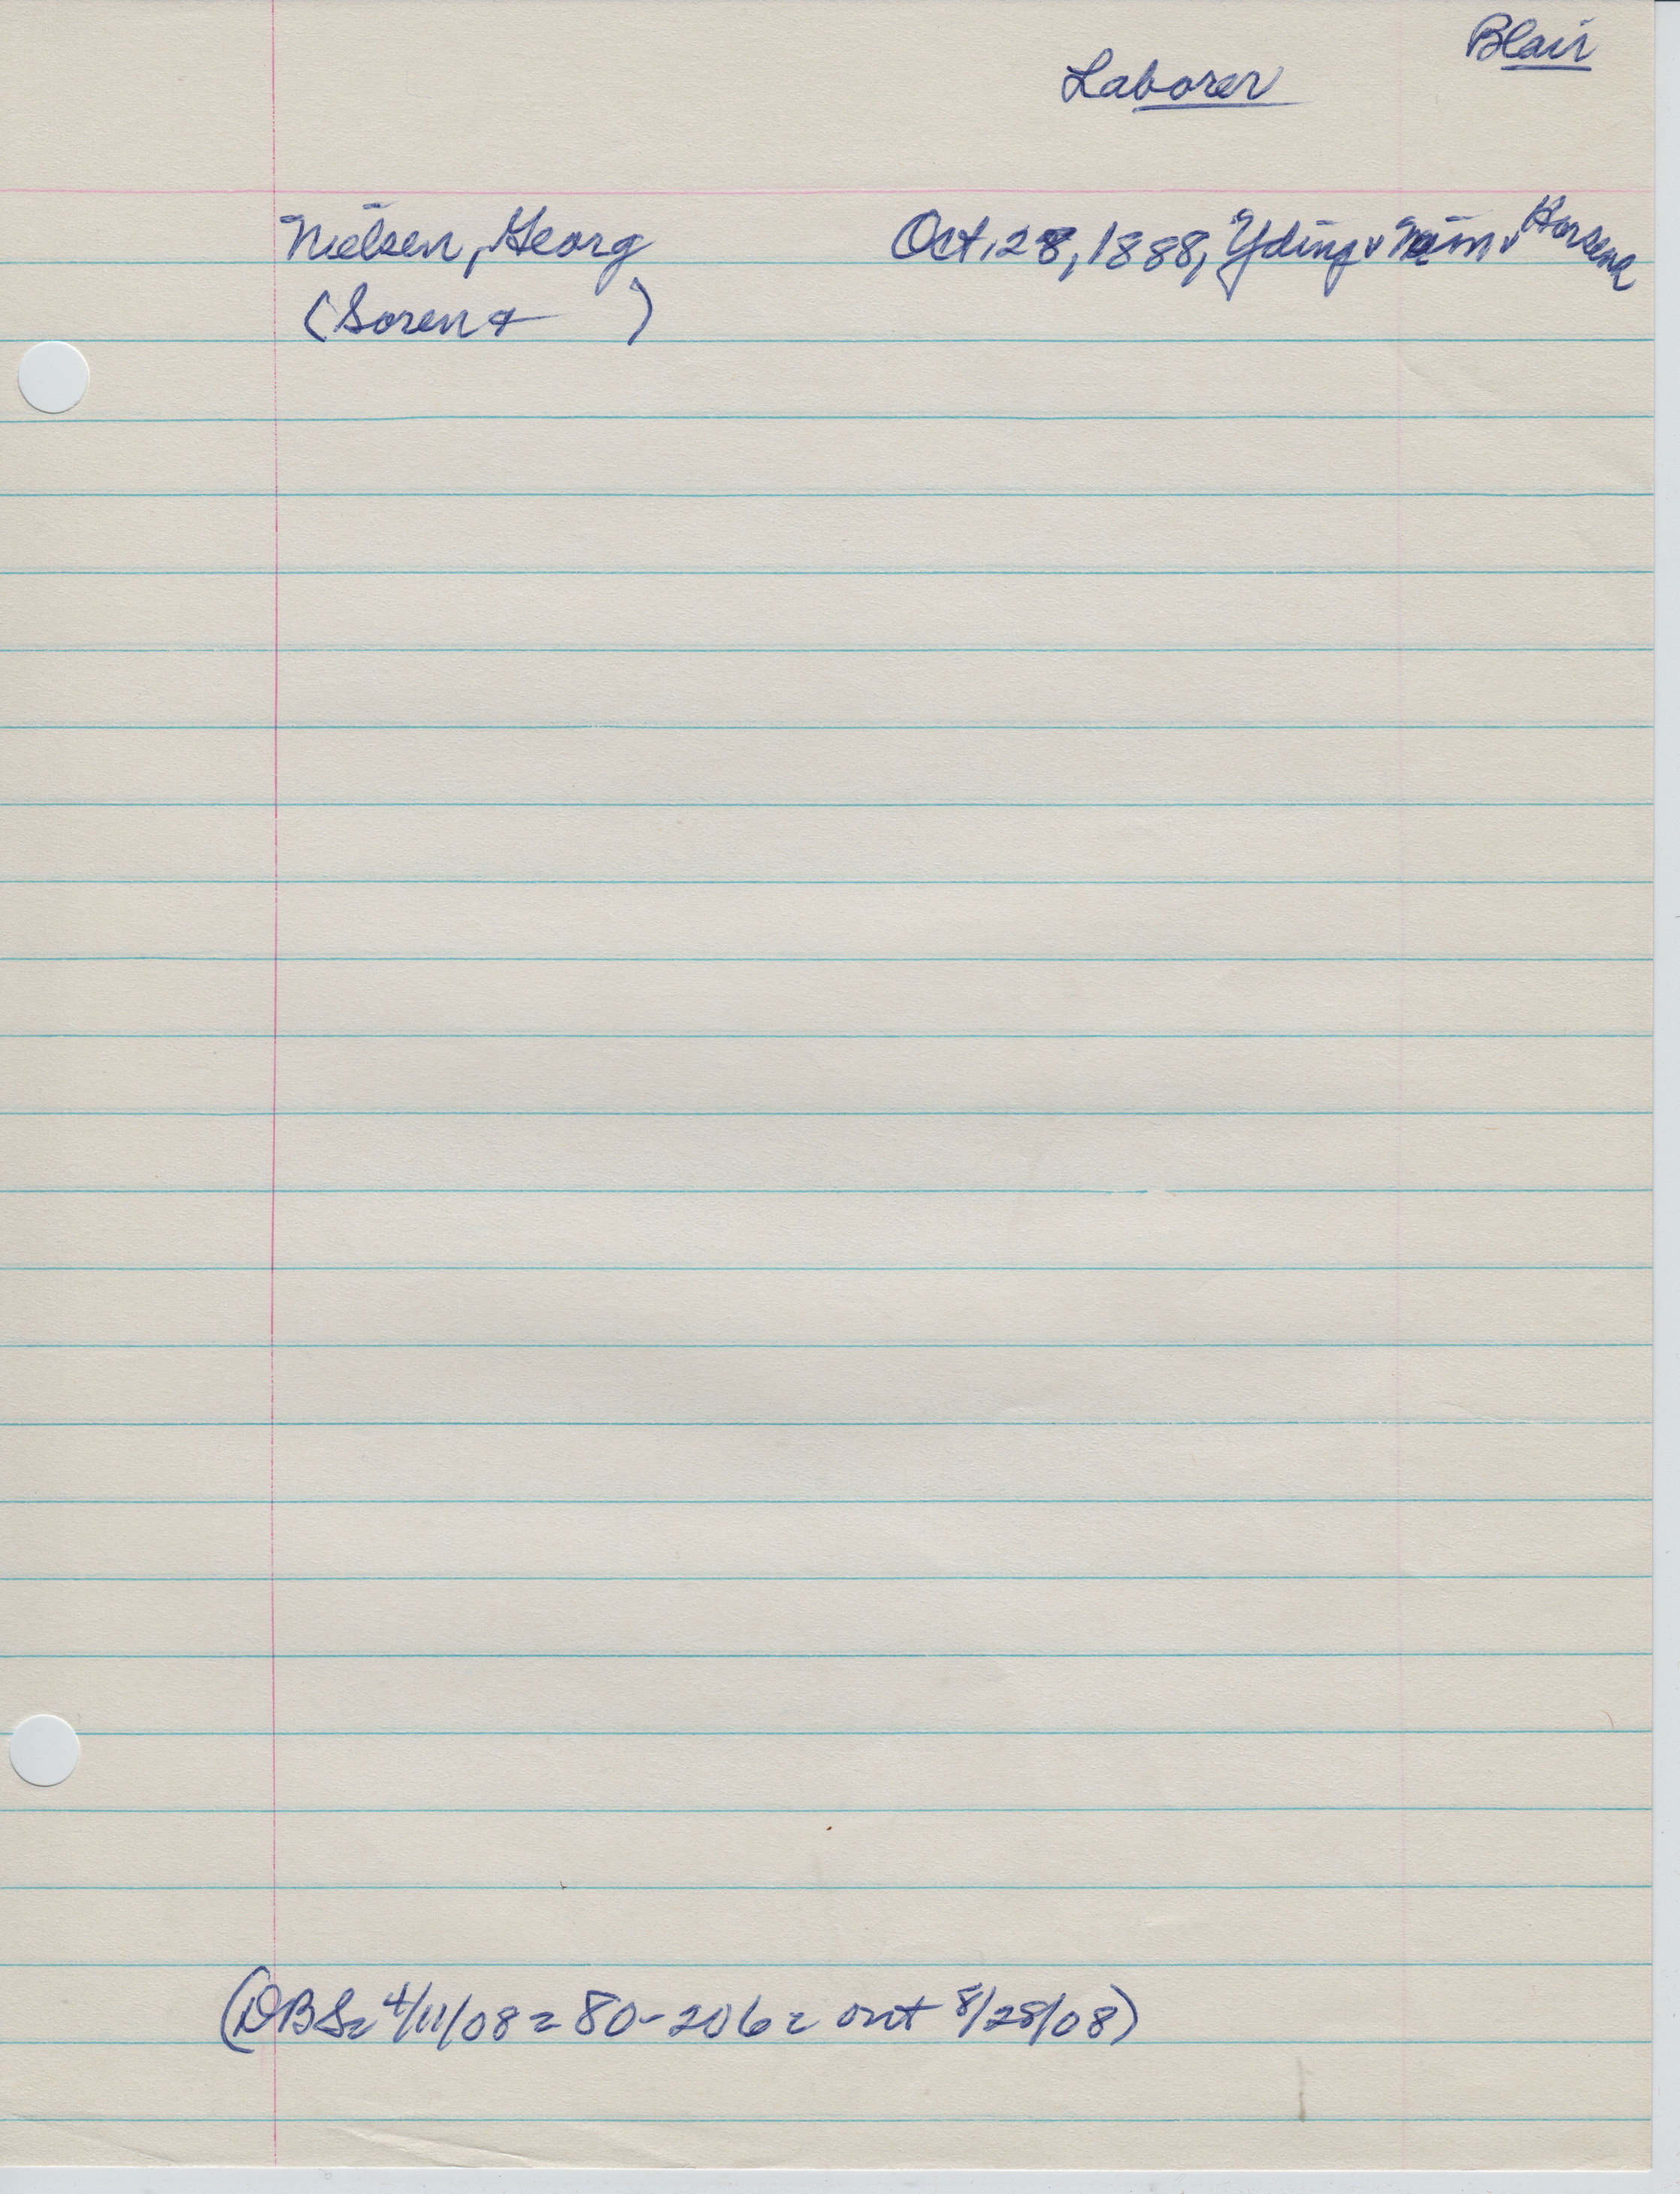 Blair
Laborer
Nielsen, Georg Oct. 28, 1888, Yding v Horsens
(Soren + )
(DBS= 4/11/08 = 80-206 = out 8/28/08)